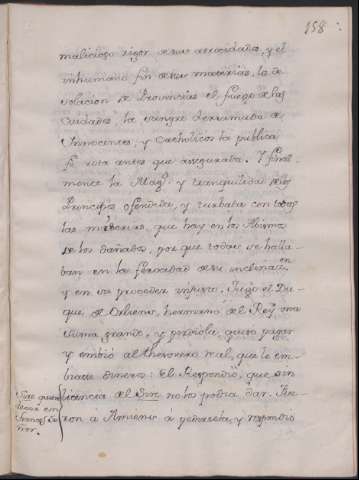 158
malicioso rigor de sus atrocidades, y el
inhumano fin de sus materias, la de
solacion de Provincias el fuego de las
Ciudades, la sangre derramada de
Innocentes, y Catholicos la publica
fe rota antes que assegurada. Y final
mente la Mag.d y tranquilidad de los
Principes ofendida, y turbada con todas
las miserias, que hay en los Abismos
de los dañados, por que todas se halla
ban en la ferocidad de su inclinacion
y en su proceder injusto. Jugó el Du
que de Orliens, hermano del Rey, una
suma grande, y perdiola, quiso pagar
y embió al thesorero real, que le em
biasse dineros: El Respondió, que sin
licencia del Señor no lo podia dar. Fue
ron á Amiens á pedirsela, y respondió